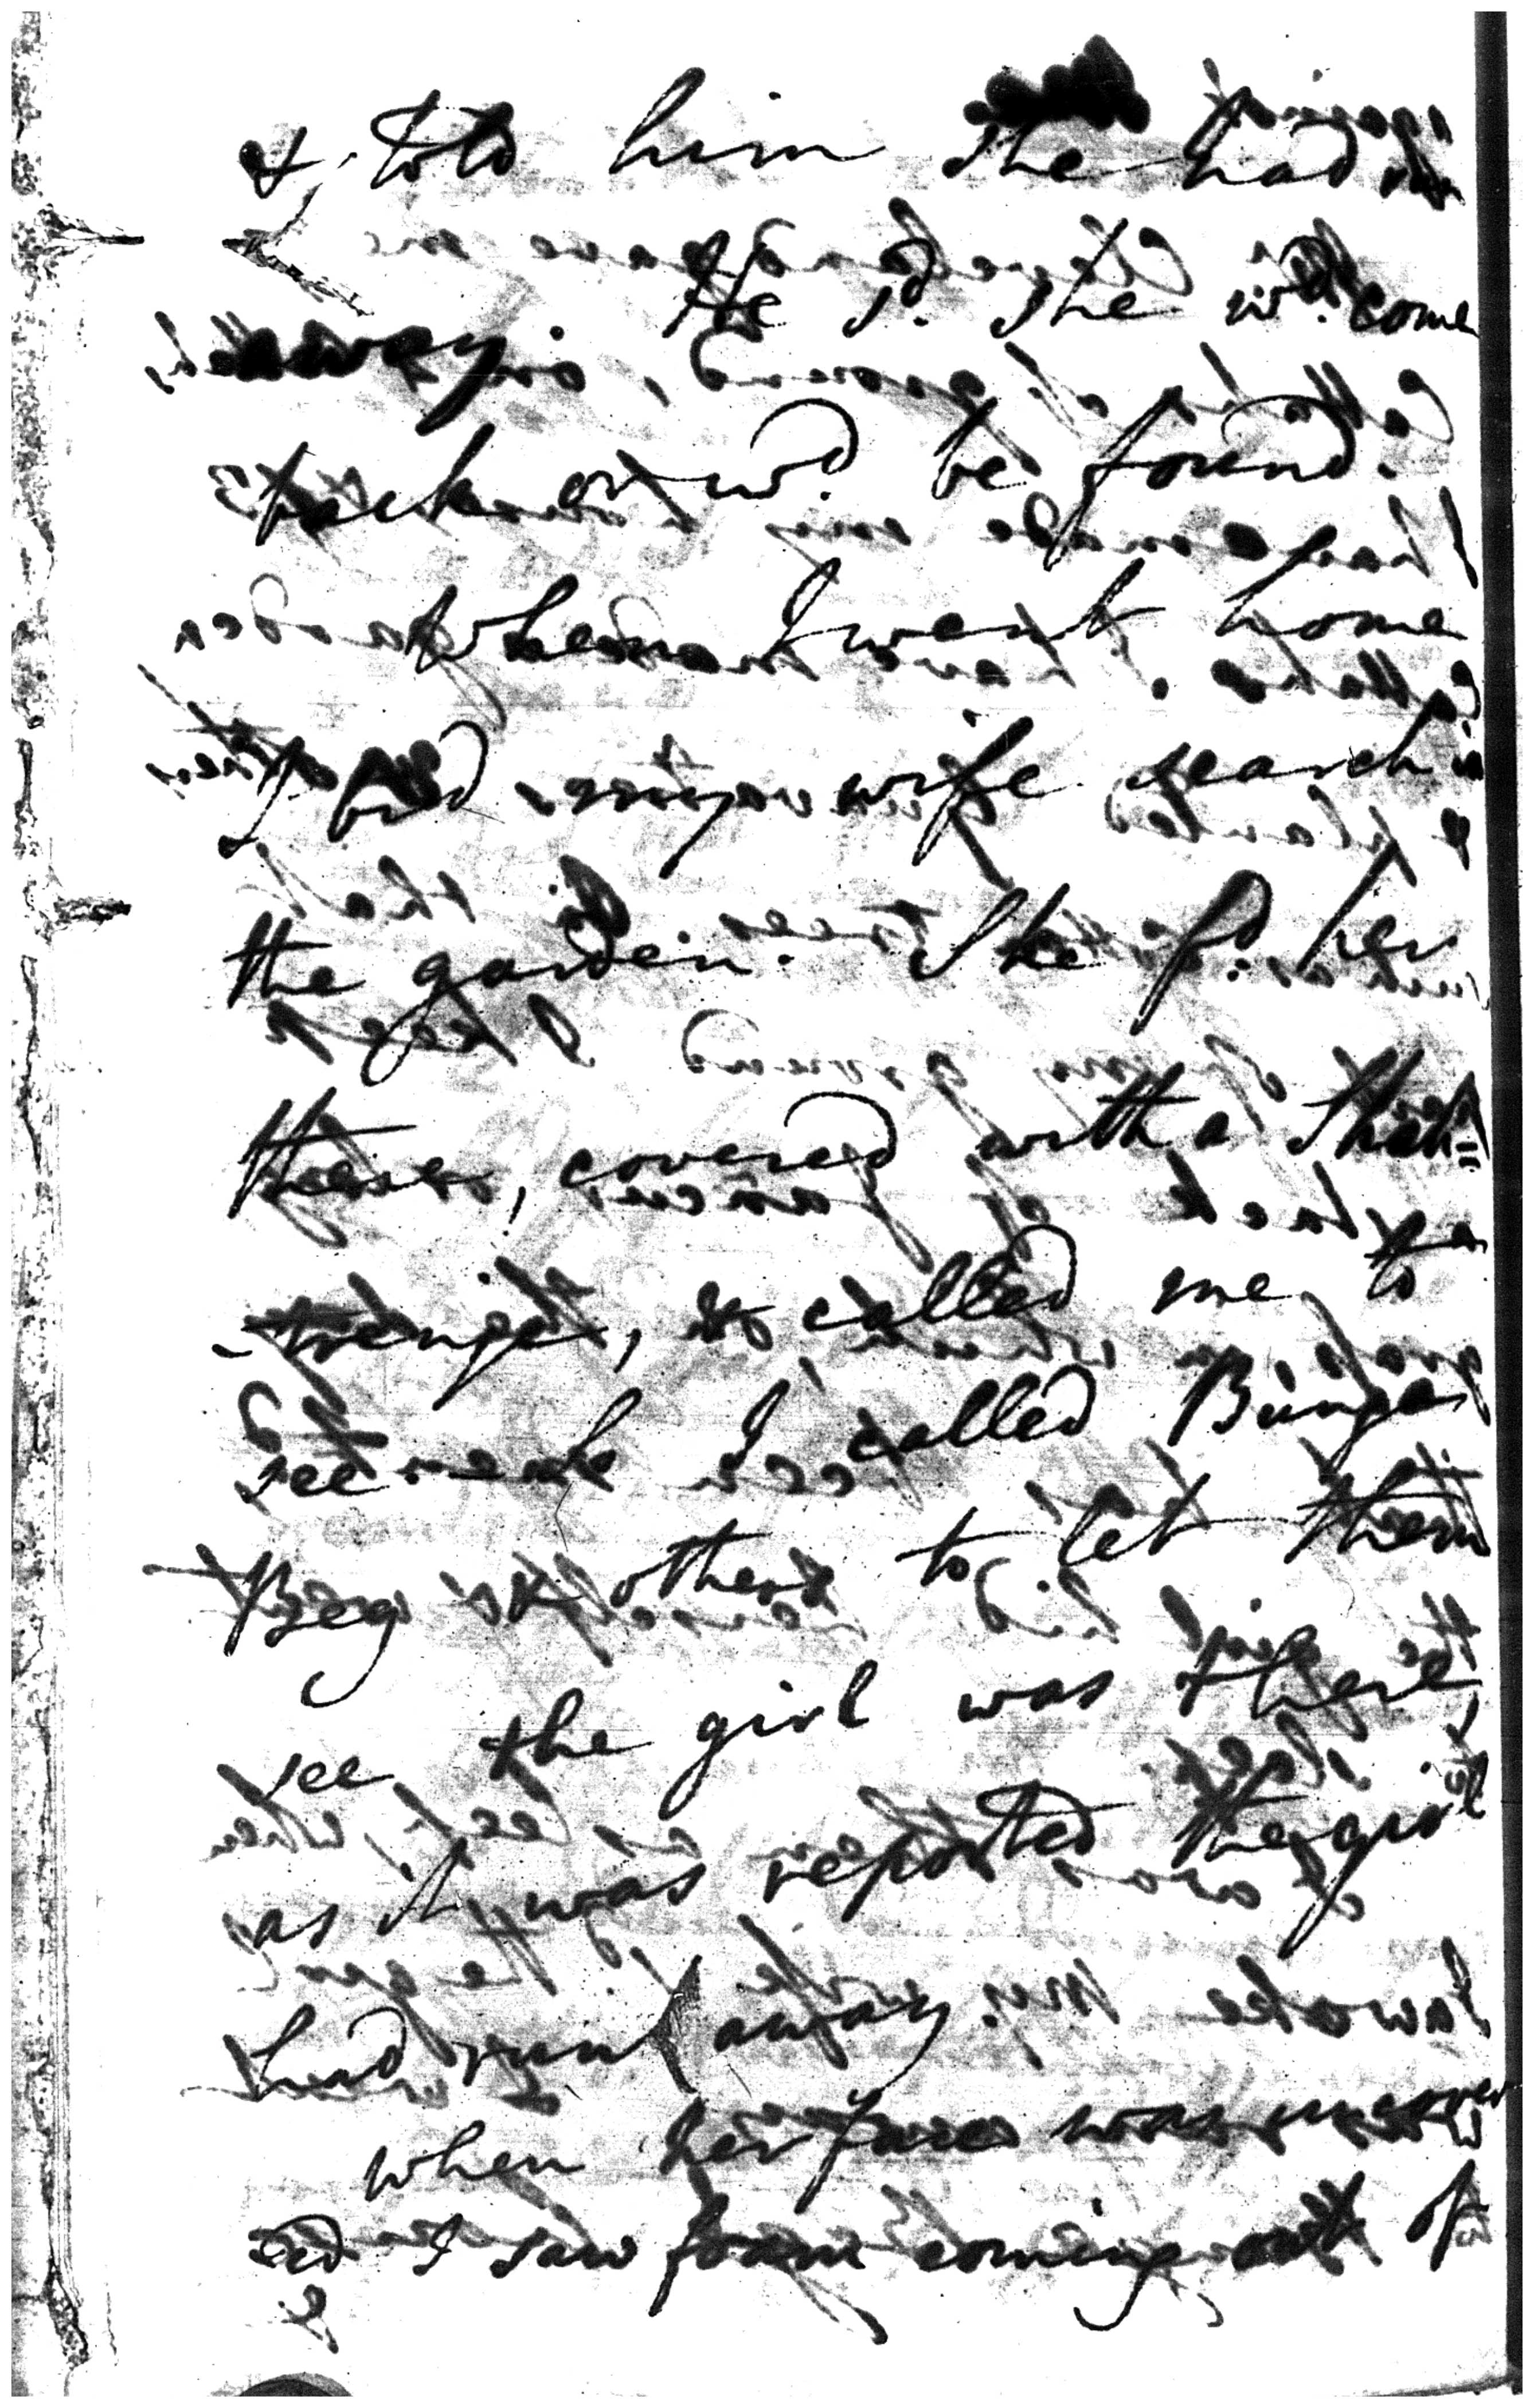 & told him she had run
away. He sd. she wd. come
back or wd. be found.
When I went home
I bid my wife search in
the garden. She fd. her
there, covered with a Shat=
-trenge, & called me to
see. I called Bunga
Beg & others to let them
see the girl was there,
as it was reported the girl
had run away
when her face was uncover
ed I saw foam coming out of